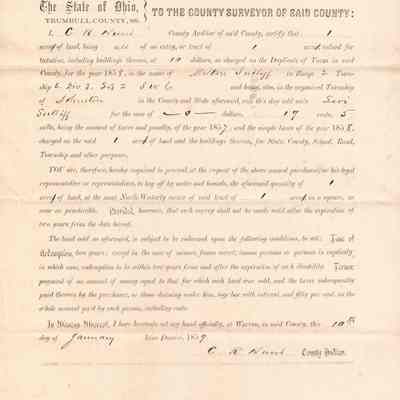 The State of Ohio,
TRUMBULL COUNTY, SS.
TO THE COUNTY SURVEYOR OF SAID COUNTY:
I, C R Hunt County Auditor of said county, certify that 1
acre of land, being all of an entry, or tract of 1 acre valued for
taxation, including buildings thereon, at 10 dollars, as charged on the Duplicate of Taxes in said
County, for the year 1858, in the name of Milton Sutliff in Range 2 Town-
ship 6 and being, also, in the organized Township
of Johnston in the County and State aforesaid, was this day sold unto Levi
Sutliff for the sum of 0 dollars, 17 cents, 5
mills, being the amount of taxes and penalty, of the year 1857, and the simple taxes of the year 1858,
charged on the said 1 acre of land and the buildings thereon, for State, County, School, Road,
Township and other purposes.
YOU are, therefore, hereby required to proceed, at the request of the above named purchaser or his legal
representative or representatives, to lay off by metes and bounds, the aforesaid quantity of 1
acre of land, at the most North Westerly corner of said tract of 1 acre in a square, as
near as practicable. Provided, however, that such survey shall not be made until after the expiration of
two years from the date hereof.
The land sold as aforesaid, is subject to be redeemed upon the following conditions, to wit: Time of
Redemption, two years; except in the case of minors, femes covert, insane persons or persons in captivity,
in which case, redemption to be within two years from and after the expiration of such disability. Terms:
payment of an amount of money equal to that for which such land was sold, and the taxes subsequently
paid thereon by the purchaser, or those claiming under him, together with interest, and fifty per cent. on the
whole amount paid by such person, including costs.
In Witness Whereof, I have hereunto set my hand officially, at Warren, in said County, this 10th
day of January Anno Domini, 1859
C. R. Hunt County Auditor.